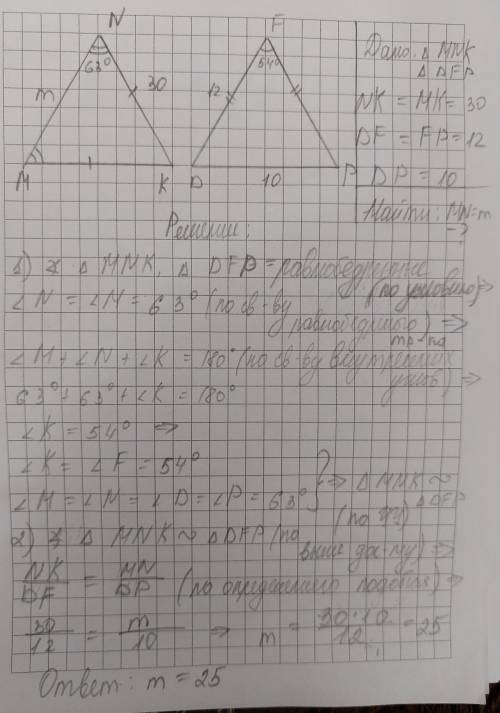 N
F
63°
54°
m
30
12
M
K
D
10
P
Дано: △ MNK
△ DFP
NK = MK = 30
DF = FP = 12
DP = 10
Найти: MN = m
- ?
Решение:
1) △ MNK, △ DFP = равнобедренные
(по условию) =>
∠N = ∠M = 63° (по св-ву
равнобедренного
тр-ка) =>
∠M + ∠N + ∠K = 180° (по св-ву внутренних
углов) =>
63° + 63° + ∠K = 180°
∠K = 54° =>
∠K = ∠F = 54°
∠M = ∠N = ∠D = ∠P = 63° } => △ MNK ~
△ DFP
(по УУ)
2) △ MNK ~ △ DFP (по
выше док-му) =>
NK/DF = MN/DP (по определению подобия) =>
30/12 = m/10 => m = 30·10/12 = 25
Ответ: m = 25